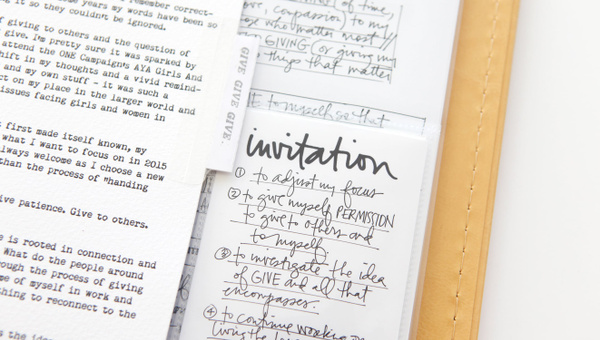 remember correct-
it so they couldn't be ignored.
f giving to others and the question of
give. I'm pretty sure it was sparked by
attend the ONE Campaigns AYA Girls And
hift in my thoughts and a vivid remind-
and my own stuff - it was such a
ct on my place in the larger world and
issues facing girls and women in
first made itself known, my
what I want to focus on in 2015
lways welcome as I choose a new
than the process of "handing
ive patience. Give to others.
e is rooted in connection and
What do the people around
ough the process of giving
me of myself in work and
thing to reconnect to the
s the idea
GIVE GIVE GIVE.
of time,
compassion) to my
who matter most//
GIVING (or giving my
to things that matter
to myself so that
invitation
① to adjust my focus
② to give myself PERMISSION
to give to others and
to myself.
③ to investigate the idea
of GIVE and all that
encompasses.
④ to continue working on
living the